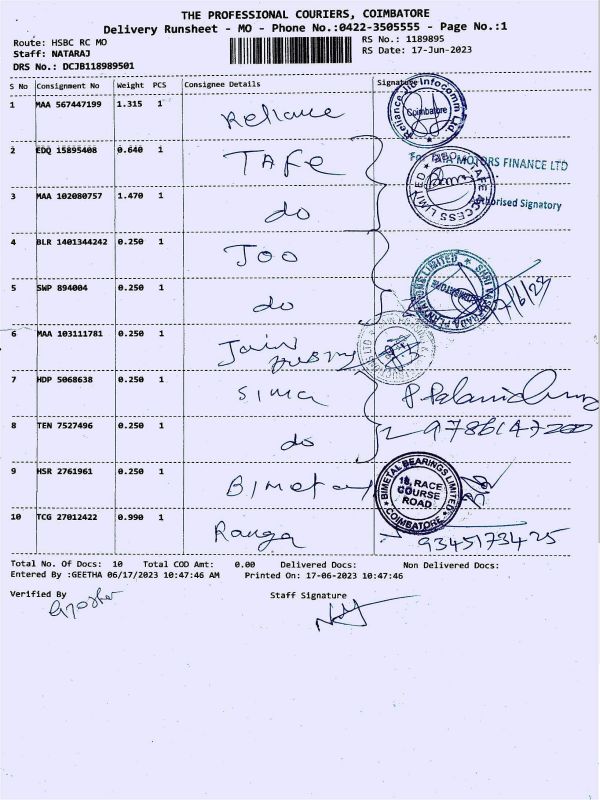 THE PROFESSIONAL COURIERS, COIMBATORE
Delivery Runsheet - MO - Phone No.:0422-3505555 - Page No.:1
Route: HSBC RC MO
Staff: NATARAJ
DRS No.: DCJB118989501
RS No.: 1189895
RS Date: 17-Jun-2023
S No Consignment No Weight PCS Consignee Details Signature
1 MAA 567447199 1.315 1 Reliance
Reliance Jio Infocomm Ltd.
Coimbatore
2 EDQ 15895408 0.640 1 TAFE
For TATA MOTORS FINANCE LTD
TAFE ACCESS LIMITED
Authorised Signatory
3 MAA 102080757 1.470 1 do
4 BLR 1401344242 0.250 1 TOO
5 SWP 894004 0.250 1 do
6 MAA 103111781 0.250 1 Jain
7 HDP 5068638 0.250 1 Sima
8 TEN 7527496 0.250 1 do
9786147200
9 HSR 2761961 0.250 1 Bimetal
BIMETAL BEARINGS LIMITED
18, RACE
COURSE
ROAD
COIMBATORE
10 TCG 27012422 0.990 1 Ranga
9345173425
Total No. Of Docs: 10 Total COD Amt: 0.00 Delivered Docs: Non Delivered Docs:
Entered By :GEETHA 06/17/2023 10:47:46 AM Printed On: 17-06-2023 10:47:46
Verified By Staff Signature